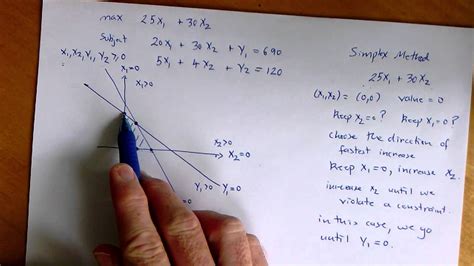 max 25x₁ + 30x₂
Subject 20x₁ + 30x₂ + y₁ = 690
5x₁ + 4x₂ + y₂ = 120
x₁, x₂, y₁, y₂ ≥ 0
x₁=0
x₁>0
x₂>0
x₂=0
y₁>0
y₁=0
Simplex Method
25x₁ + 30x₂
(x₁,x₂) = (0,0) value = 0
keep x₂=0? keep x₁=0?
choose the direction of
fastest increase
keep x₁=0, increase x₂
increase x₂ until we
violate a constraint.
in this case, we go
until y₁=0.